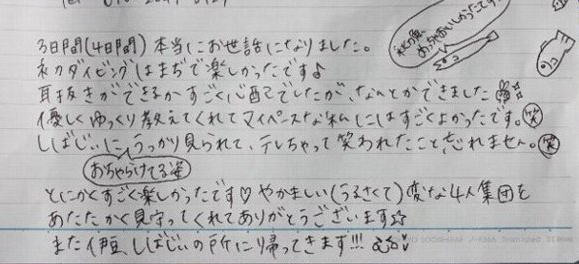 秋の魚
めっちゃおいしかったです
3日間(4日間)本当にお世話になりました。
初ダイビングはまぢで楽しかったです♪
耳抜きができるかすごく心配でしたが、なんとかできました
優しくゆっくり教えてくれてマイペースな私にはすごくよかったです。笑
しばじぃにうっかり見られて、テレちゃって笑われたこと忘れません。笑
おちゃらけてる姿
とにかくすごく楽しかったです♡ やかましい(うるさくて)変な4人集団を
あたたかく見守ってくれてありがとうございます☆
また伊豆、しばじぃの所に帰ってきます!!!